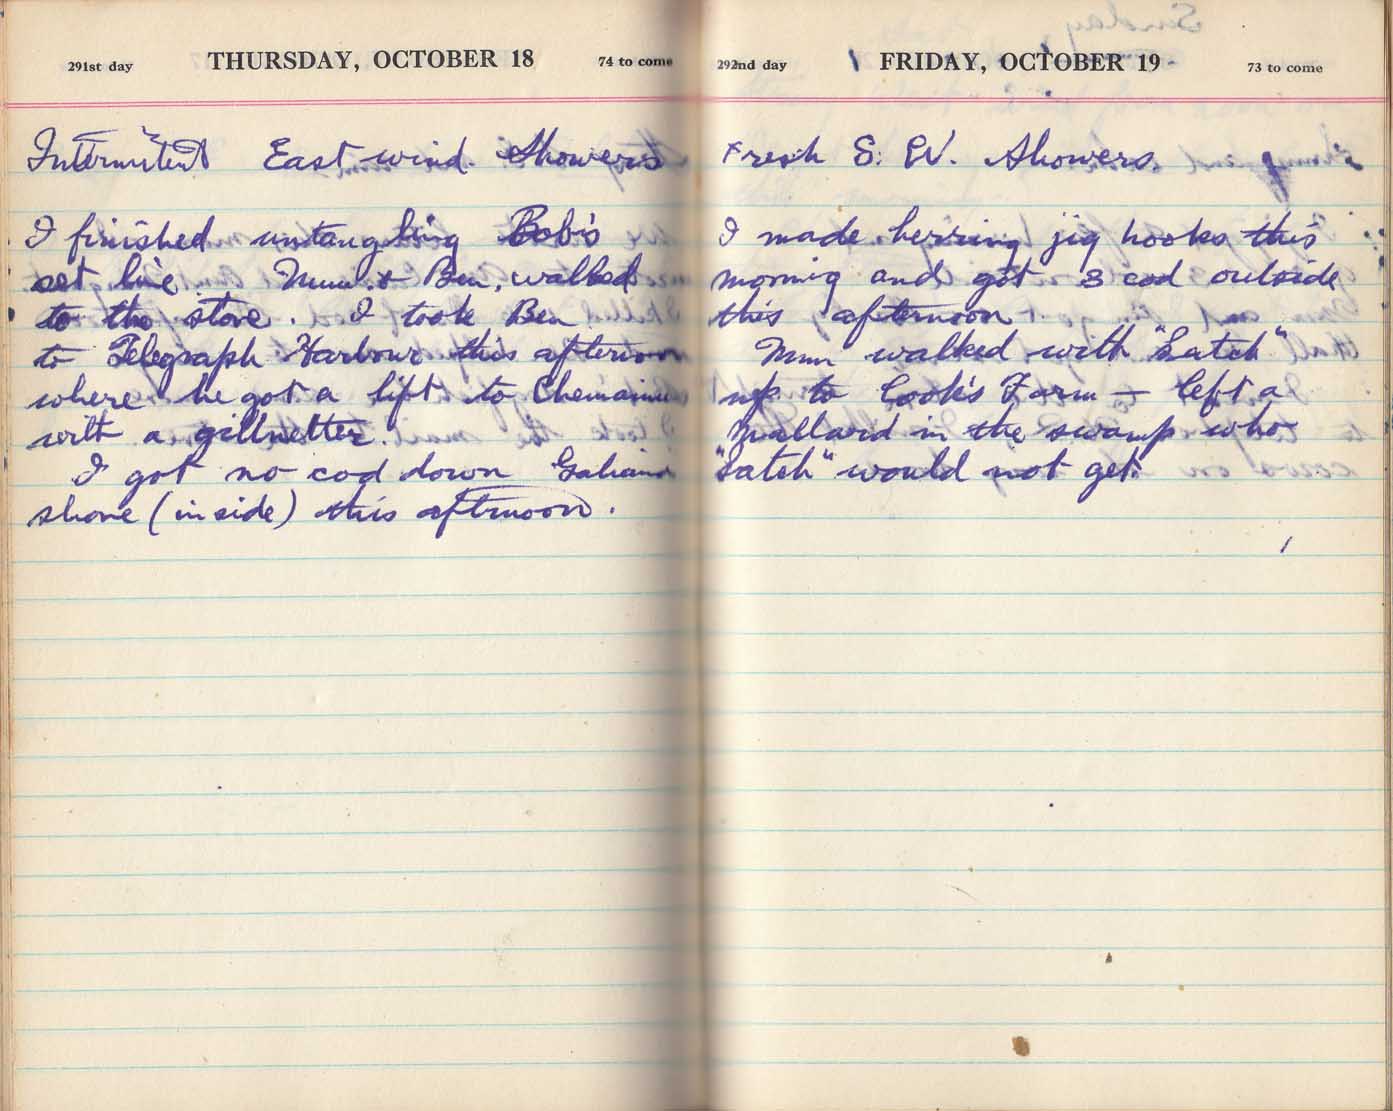 291st day THURSDAY, OCTOBER 18 74 to come
Intermittent East wind. Showers
I finished untangling Bob's
set line. Mum & Ben, walked
to the store. I took Ben
to Telegraph Harbour this afternoon
where he got a lift to Chemainus
with a gillnetter.
I got no cod down Galiano
shore (inside) this afternoon.
292nd day FRIDAY, OCTOBER 19 73 to come
Fresh S. W. Showers.
I made herring jig hooks this
morning and got 3 cod outside
this afternoon
Mum walked with "Satch"
up to Cook's Farm — left a
mallard in the swamp who
"Satch" would not get.